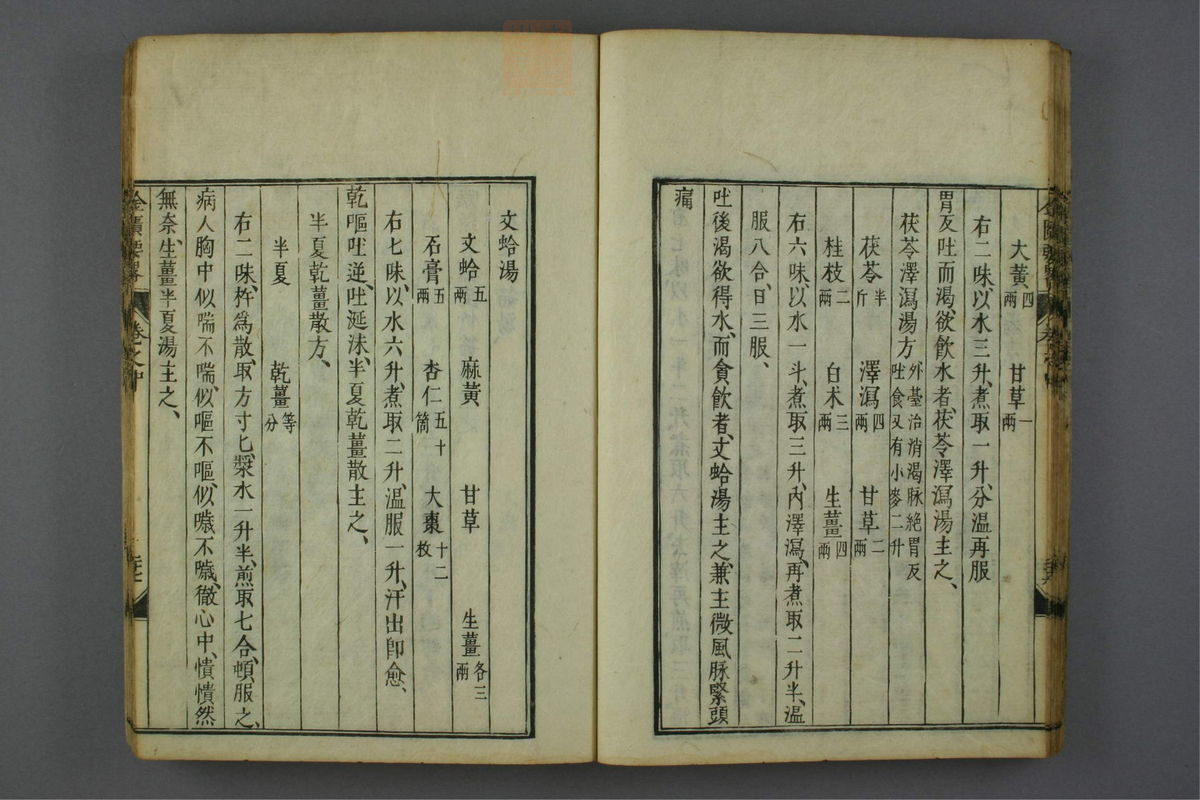 大黃四兩　甘草一兩
右二味、以水三升、煮取一升、分溫再服
胃反吐而渴、欲飲水者、茯苓澤瀉湯主之、
茯苓澤瀉湯方外臺治消渴脉絶胃反吐食又有小麥二升
茯苓半斤　澤瀉四兩　甘草二兩
桂枝二兩　白朮三兩　生薑四兩
右六味、以水一斗、煮取三升、內澤瀉、再煮取二升半、溫
服八合、日三服、
吐後渴欲得水、而貪飲者、文蛤湯主之、兼主微風脉緊頭
痛
文蛤湯
文蛤五兩　麻黃　甘草　生薑各三兩
石膏五兩　杏仁五十箇　大棗十二枚
右七味、以水六升、煮取二升、溫服一升、汗出卽愈、
乾嘔吐逆、吐涎沫、半夏乾薑散主之、
半夏乾薑散方、
半夏　乾薑等分
右二味、杵爲散、取方寸匕、漿水一升半、煎取七合、頓服之、
病人胸中似喘不喘、似嘔不嘔、似噦不噦、徹心中、憒憒然
無奈、生薑半夏湯主之、
金匱要畧　卷之中